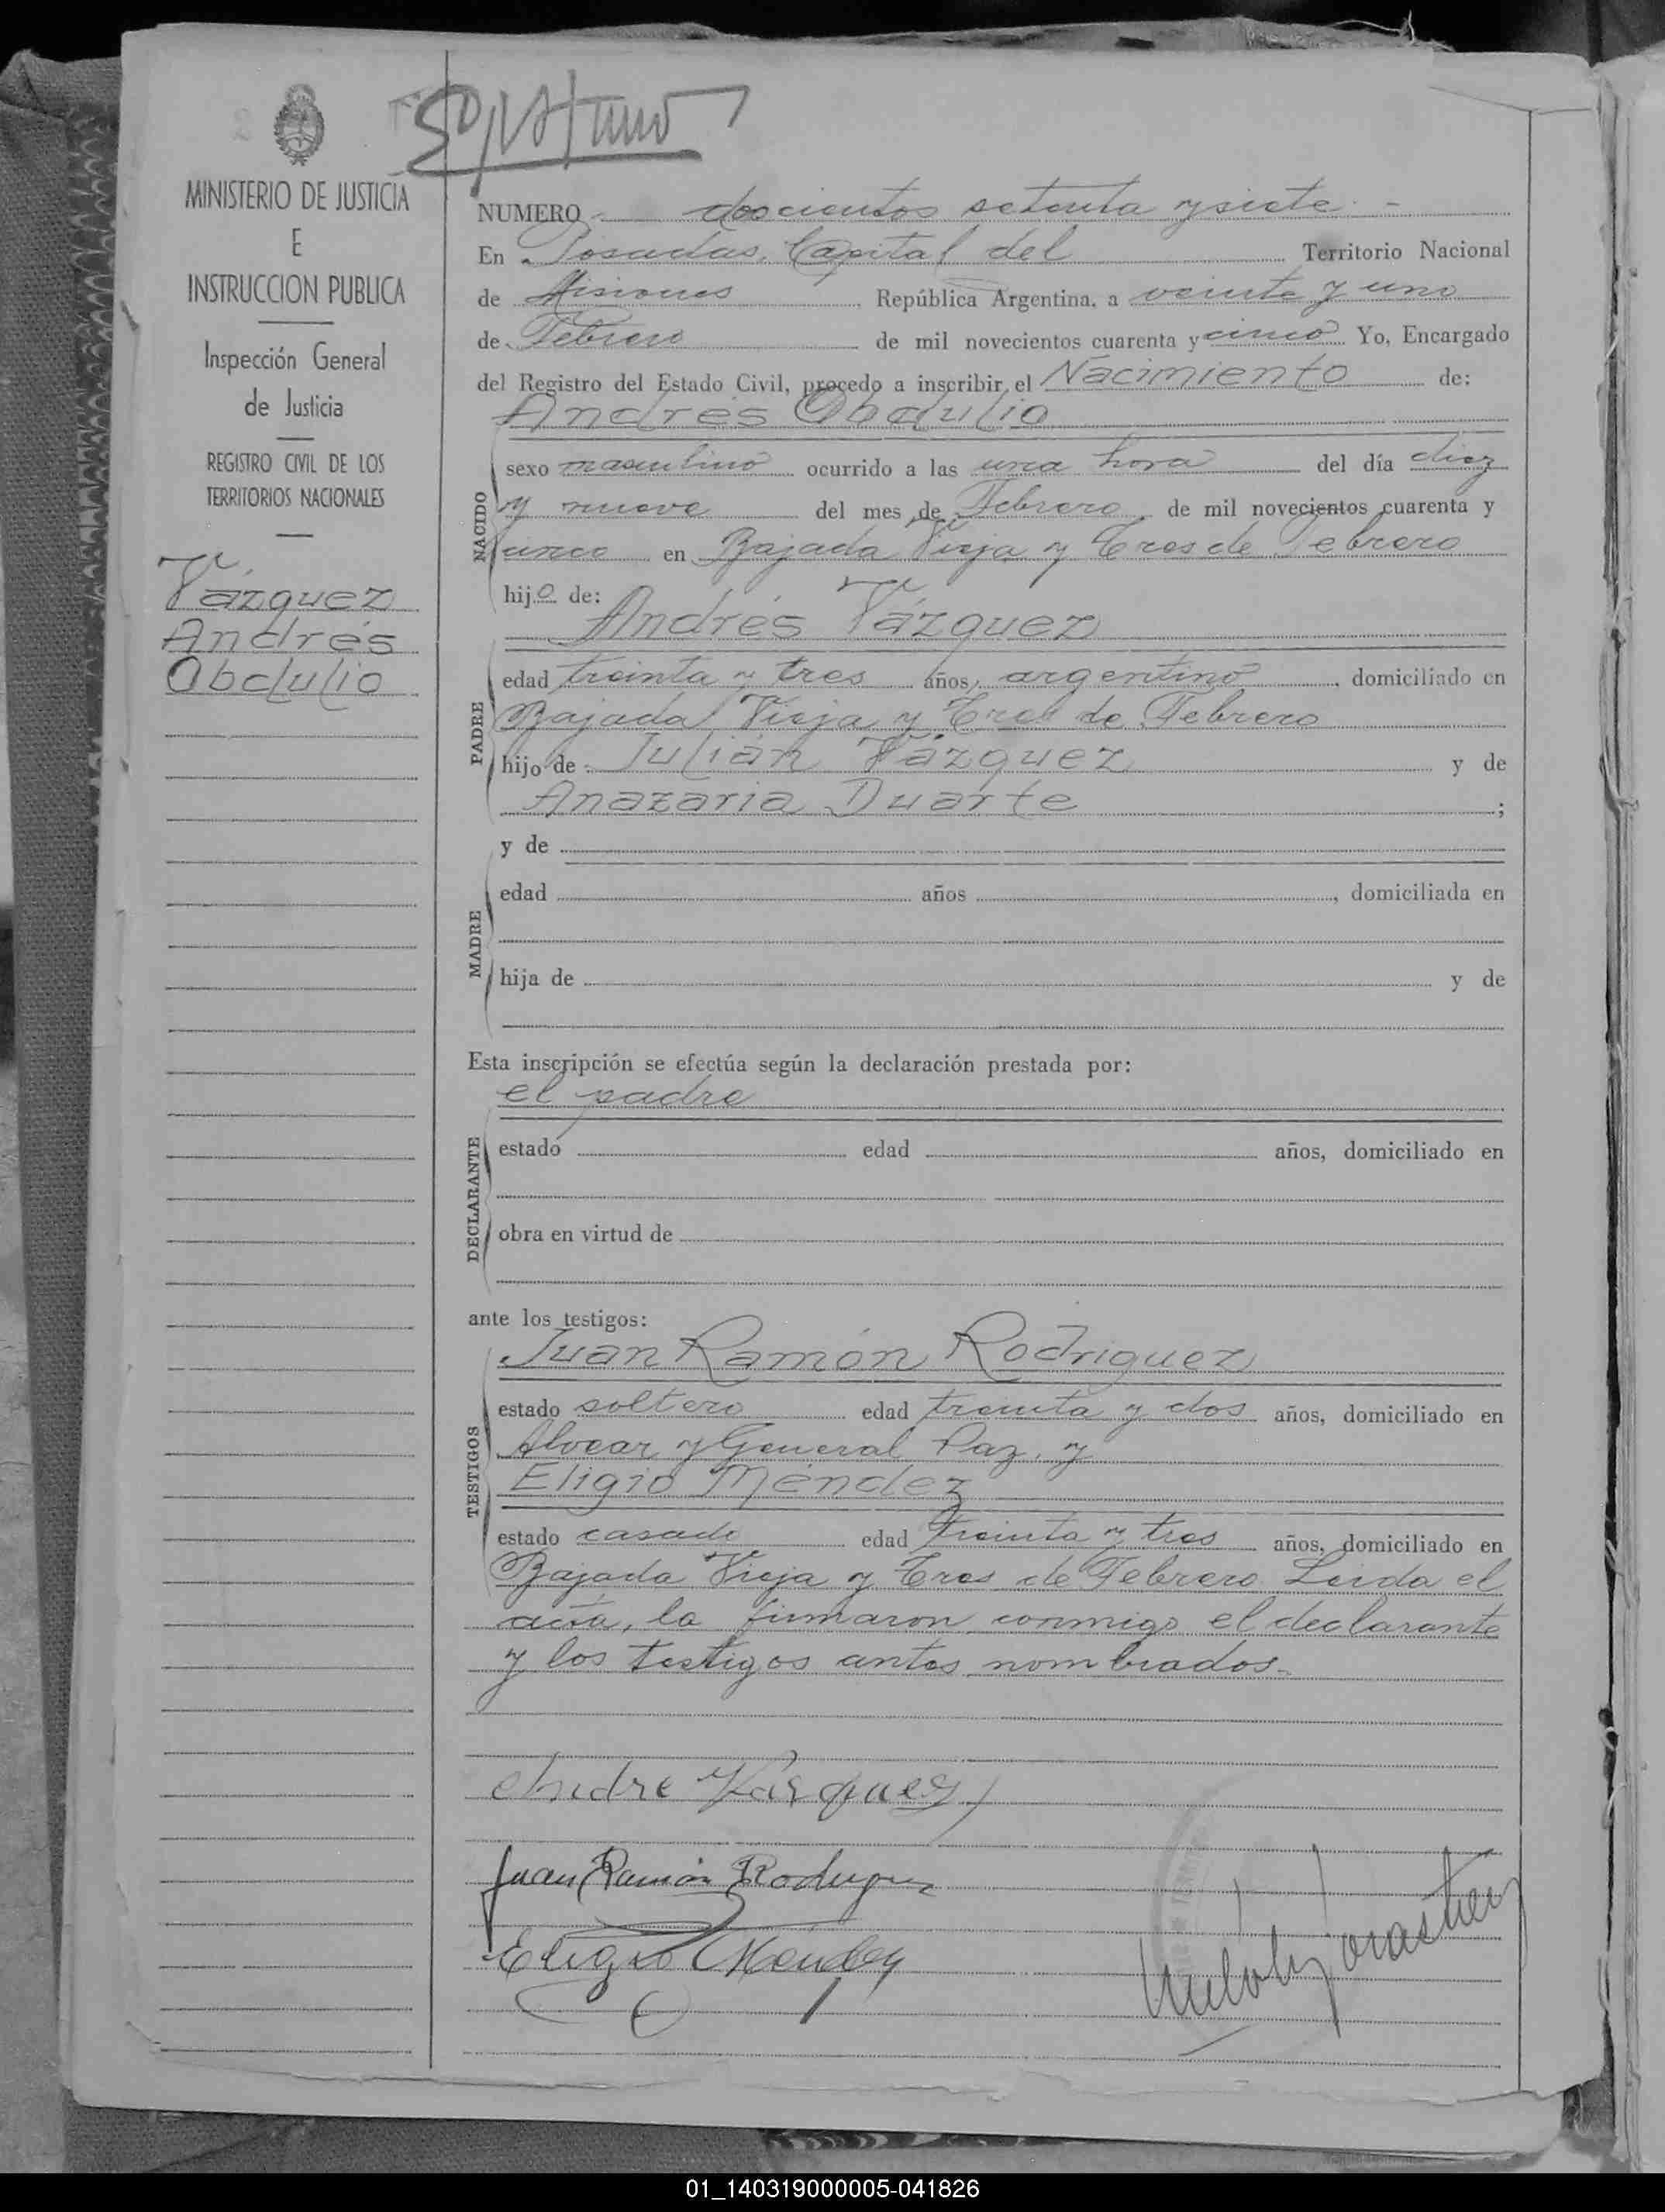 MINISTERIO DE JUSTICIA
E
INSTRUCCION PUBLICA
Inspección General
de Justicia
REGISTRO CIVIL DE LOS
TERRITORIOS NACIONALES
Vázquez
Andrés
Obdulio
NUMERO doscientos setenta y siete -
En Posadas, Capital del Territorio Nacional
de Misiones República Argentina, a veinte y uno
de Febrero de mil novecientos cuarenta y cinco Yo, Encargado
del Registro del Estado Civil, procedo a inscribir, el Nacimiento de:
Andrés Obdulio
NACIDO
sexo masculino ocurrido a las una hora del día diez
y nueve del mes de Febrero de mil novecientos cuarenta y
cinco en Bajada Vieja y Tres de Febrero
hijo de:
Andrés Vázquez
PADRE
edad treinta y tres años, argentino, domiciliado en
Bajada Vieja y Tres de Febrero
hijo de Julián Vázquez y de
Anazaria Duarte ;
y de
MADRE
edad años , domiciliada en
hija de y de
Esta inscripción se efectúa según la declaración prestada por:
el padre
DECLARANTE
estado edad años, domiciliado en
obra en virtud de
ante los testigos:
Juan Ramón Rodriguez
TESTIGOS
estado soltero edad treinta y dos años, domiciliado en
Alvear y General Paz, y
Eligio Méndez
estado casado edad treinta y tres años, domiciliado en
Bajada Vieja y Tres de Febrero. Leida el
acta, la firmaron conmigo el declarante
y los testigos antes nombrados.-
Andre Vasquez
Juan Ramón Rodriguez
Eligio Méndez
01_140319000005-041826